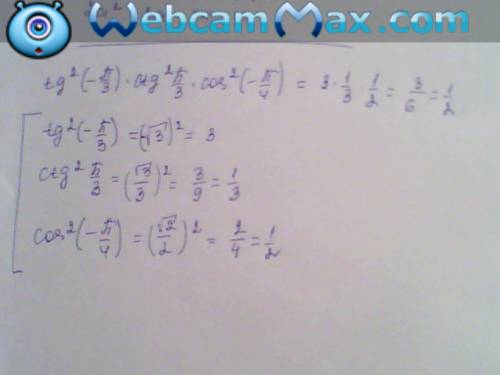 WebcamMax.com
tg²(-π/3) · ctg² π/3 · cos²(-π/4) = 3 · 1/3 · 1/2 = 3/6 = 1/2
tg²(-π/3) = (-√3)² = 3
ctg² π/3 = (√3/3)² = 3/9 = 1/3
cos²(-π/4) = (√2/2)² = 2/4 = 1/2